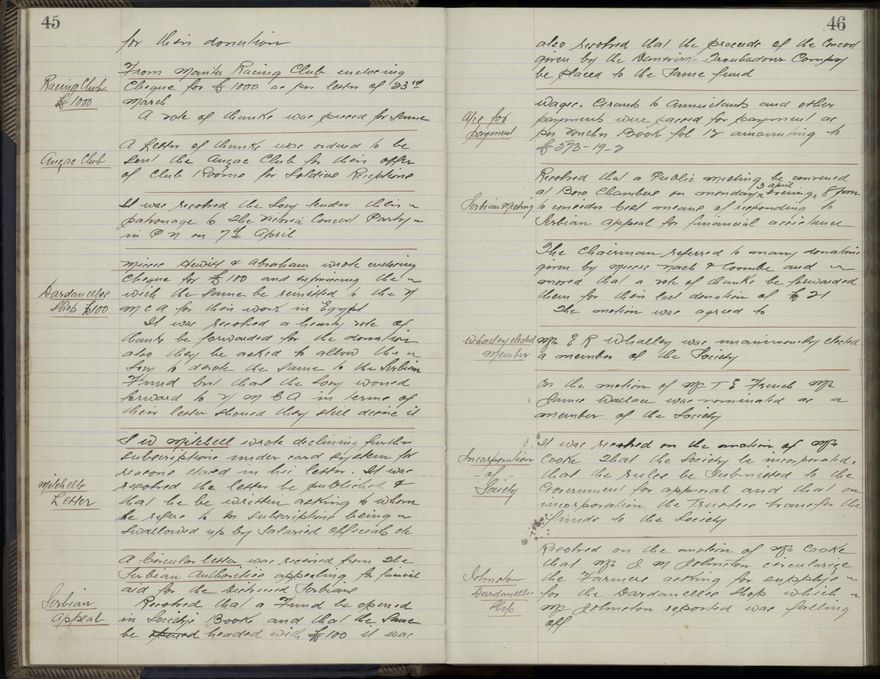 45
for their donation
Racing Club
£1000
From Manitu Racing Club enclosing
Cheque for £1000 as per letter of 23rd
March
A vote of thanks was passed for same
Anzac Club
A Letter of thanks was ordered to be
sent the Anzac Club for their offer
of Club Rooms for Soldiers Receptions
It was resolved the Socy tender their
patronage to the Concert Party
in P N on 7th April
Dardanelles
Shop £100
Messrs Hewitt & Abraham wrote enclosing
Cheque for £100 and the
wish the same be remitted to the Y
M C A for their work in Egypt
It was resolved a hearty vote of
thanks be forwarded for the donation
also they be asked to allow the
Socy to devote the same to the Serbian
Fund but that the Socy would
forward to Y M C A in terms of
their letter should they still desire it
Mitchells
Letter
J W Mitchell wrote declining further
subscriptions under card system for
reasons stated in his letter. It was
resolved the letter be published &
that he be written asking to whom
he refers to as subscriptions being
swallowed up by salaried officials etc
Serbian
appeal
A Circular letter was received from the
Serbian Authorities appealing for financial
aid for the distressed Serbians
Resolved that a Fund be opened
in Societys Books and that the same
be opened headed with £100 it was
46
also resolved that the proceeds of the Concert
given by the Troubadours Company
be placed to the same fund
A/cs for
payment
Wages. Grants to Annuitants and other
payments were passed for payment as
per Book fol 12 amounting to
£ 575-19-2
Serbian Meeting
Resolved that a Public meeting be convened
at Boro Chambers on Monday 3 april evening, 8 pm
to consider best means of responding to
Serbian appeal for financial assistance
The Chairman referred to many donations
given by Messrs Nash & Coombe and
moved that a vote of thanks be forwarded
them for their last donation of £21
The motion was agreed to
Whalley elected
Member
Mr E R Whalley was unanimously elected
a member of the Society
On the motion of Mr T E French Mr
James Wallace was nominated as a
member of the Society
Incorporation
of
Society
It was resolved on the motion of Mr
Cooke that the Society be incorporated,
that the rules be submitted to the
Government for approval and that on
incorporation the Trustees transfer the
funds to the Society
Johnston
Dardanelles
Shop
Resolved on the motion of Mr Cooke
that Mr J M Johnston circularise
the Farmers asking for supplies
for the Dardanelles Shop which
Mr Johnston reported was falling
off